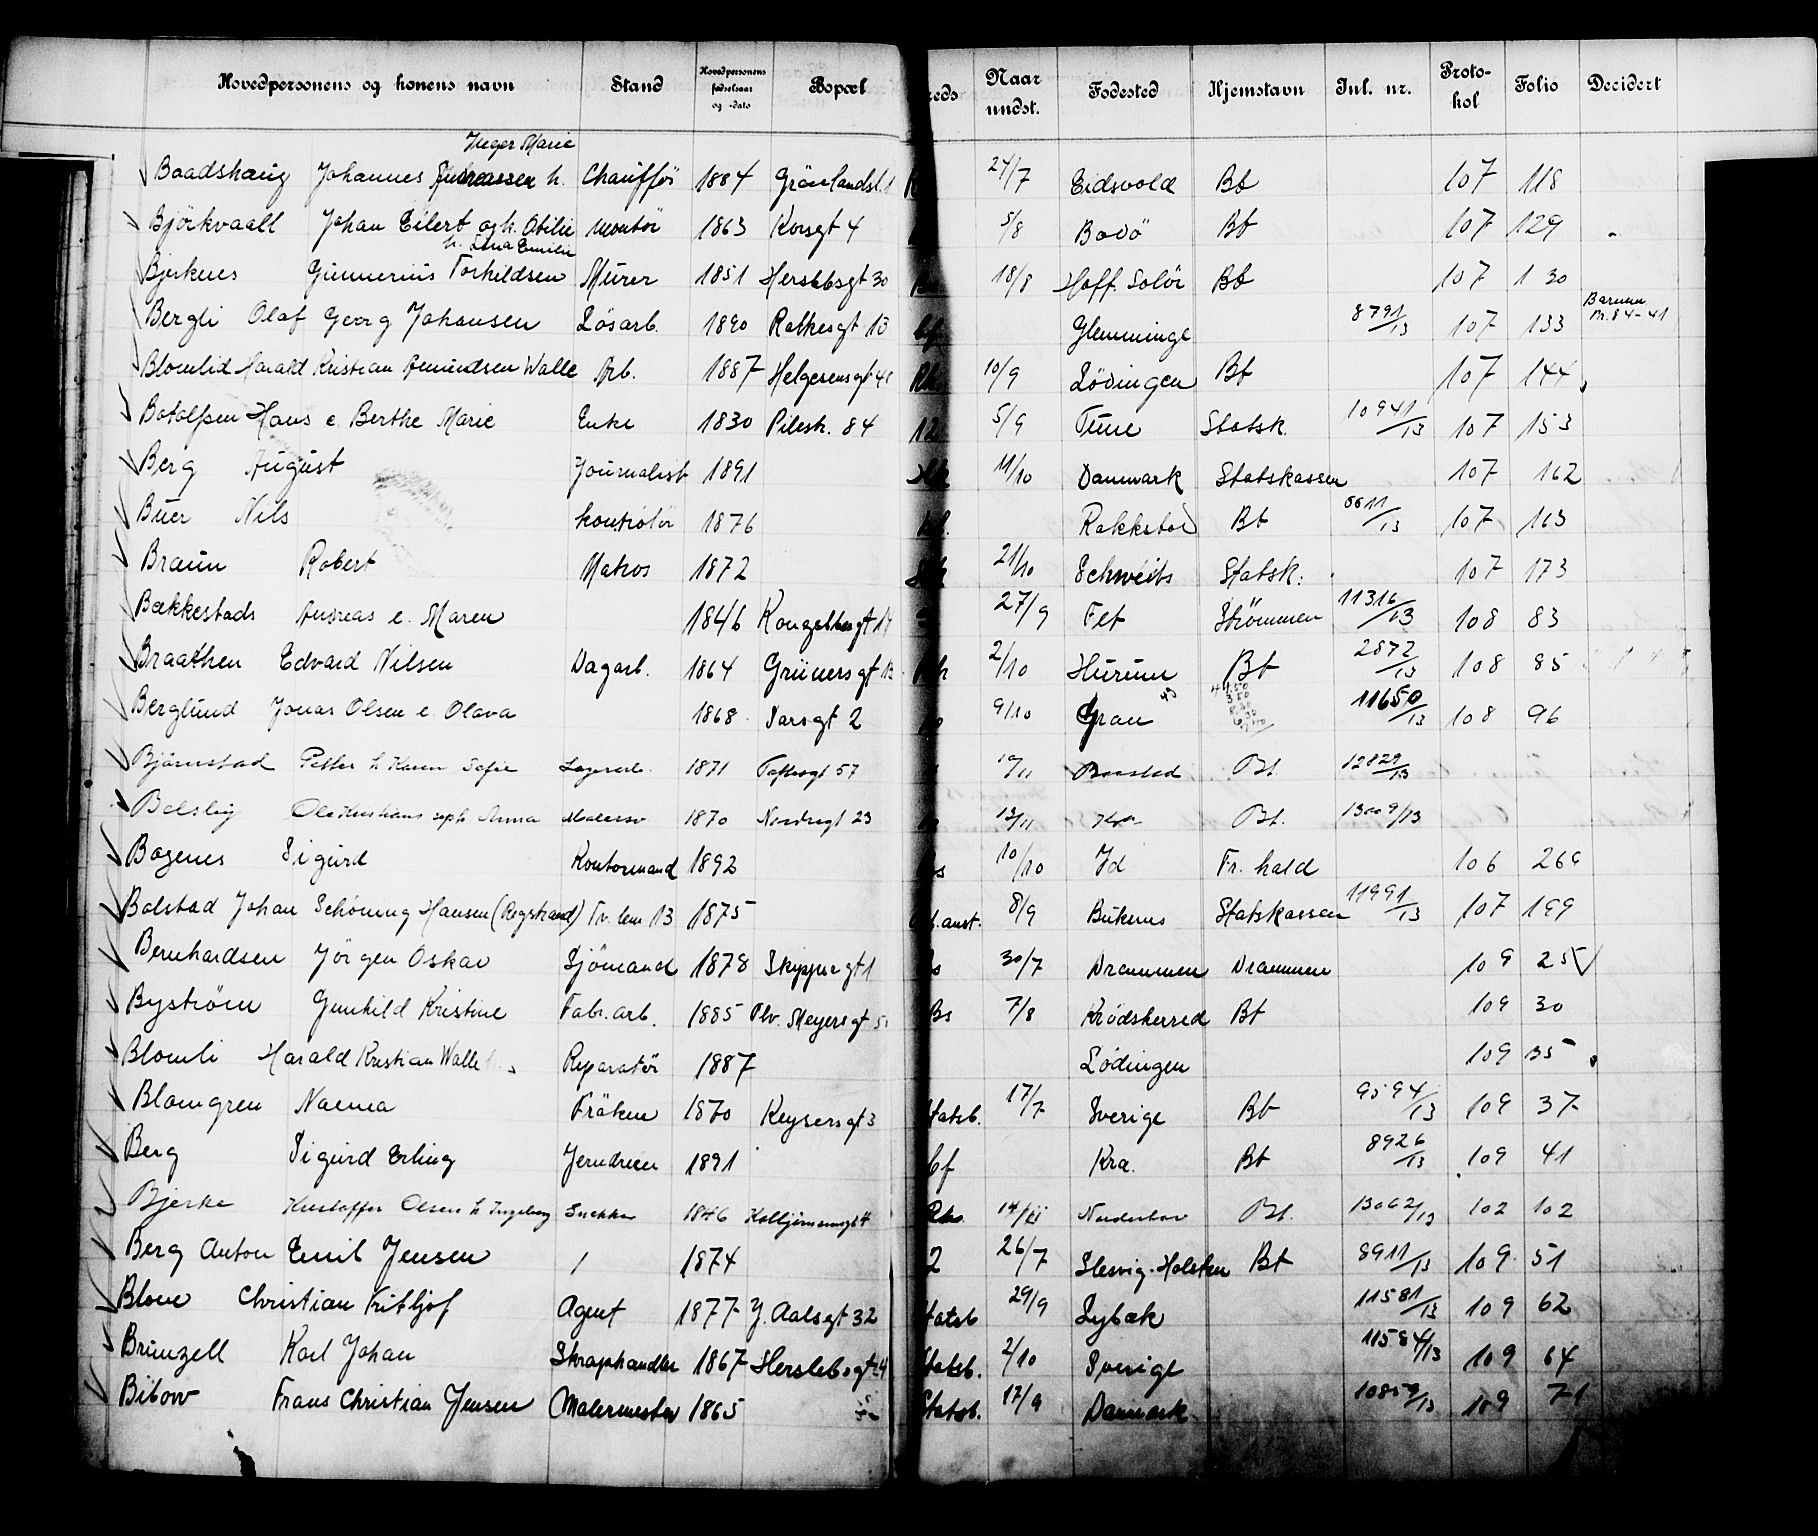 Hovedpersonens og konens navn Stand Hovedpersonens fødselsaar og -dato Bopæl reds Naar undst. Fødested Hjemstavn Inl. nr. Protokol Folio Decidert
Inger Marie
Baadshaug Johannes Andreassen h. Chauffør 1884 Grönlandsl. 1 24/7 Eidsvold Bt 107 118
Björkvaall Johan Eilert og h. Otilie Montör 1863 Korsgt 4 5/8 Bodö Bt 107 129
h. Lina Emilie
Bjerknes Gunnerius Torkildsen Murer 1851 Herslebsgt 30 18/8 Hoff. Solör Bt 107 130
Bergli Olaf Georg Johansen Lösarb. 1890 Rathesgt 13 Glemminge 8791/13 107 133 Barnem m. 84-41
Blomlid Harald Kristian Amundsen Walle Arb. 1887 Helgesensgt 41 Rh 10/9 Lödingen Bt 107 144
Botolfsen Hans e. Berthe Marie Enke 1830 Pilestr. 84 12 5/9 Tune Statsk. 10941/13 107 153
Berg August Journalist 1891 11/10 Danmark Statskassen 107 162
Buer Nils kontrolör 1876 Rakkestad Bt 6611/13 107 163
Braun Robert Matros 1872 21/10 Schweits Statsk. 107 173
Bækkestads Andreas e. Maren 1846 Kongsbergt 14 27/9 Fet Strömmen 11316/13 108 83
Braathen Edvard Nilsen Dagarb. 1864 Grünersgt 13 2/10 Hurum Bt 2872/13 108 85
Berglund Jonas Olsen e. Olava 1868 Darsgt 2 9/10 Gran 11650/13 108 96
Björnstad Petter h Karen Sofie Lagerarb. 1871 Toftesgt 57 Baastad Bt. 12829/13
Balsby Ole Kristians sep h Anna Malersv 1870 Nordregt 23 13/11 Kra Bt. 13009/13
Bogenes Sigurd Kontormand 1892 10/10 Id Fr. hald 106 266
Bolstad Johan Schöning Hansen (Rogstrand) Tv. lem 13 1875 anst. 8/9 Buksnes Statskassen 11991/13 107 199
Bernhardsen Jörgen Oskar Sjömand 1878 Skippergt 1 30/7 Drammen Drammen 109 25
Byström Gunhild Kristine Fabr. arb. 1885 Thv. Meyersgt 5 Bs 7/8 Krödsherred Bt 109 30
Blomli Harald Kristian Walle Reparatör 1887 Lödingen 109 35
Blomgren Naema Fröken 1870 Keysersgt 3 Statsb. 17/7 Sverige Bt 9594/13 109 37
Berg Sigurd Erling Jerndreier 1891 bf Kra. Bt 8926/13 109 41
Bjerke Kristoffer Olsen h Ingeborg Snekker 1846 Kolbjörnsensgt 4 Rho. 14/11 Norderhov Bt. 13062/13 102 102
Berg Anton Emil Jensen / 1874 2 26/7 Slesvig-Holsten Bt 8911/13 109 51
Blom Christian Fritljof Agent 1877 J. Aalsgt 32 Statsb 29/9 Lybæk 11581/13 109 62
Brunzell Karl Johan Skraphandler 1867 Herslebsgt 24 Statsb. 2/10 Sverige 11584/13 109 64
Bibow Frans Christian Jensen Malermester 1865 Statsb. 17/9 Danmark 10859/13 109 71